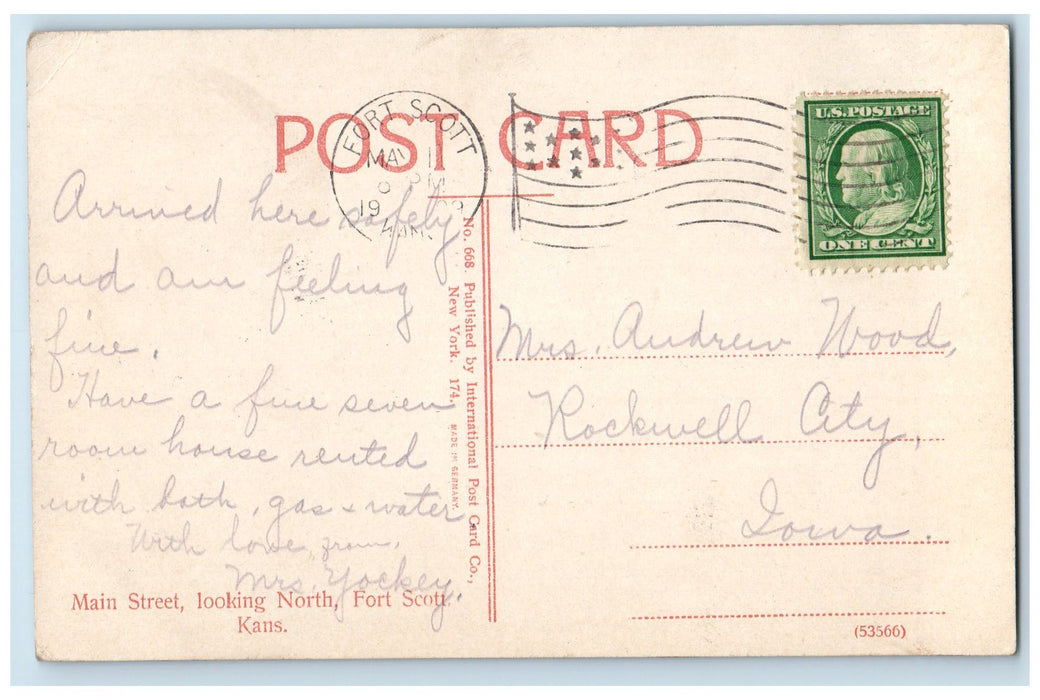 POST CARD
FORT SCOTT
MAY
19
U.S. POSTAGE
ONE CENT
Arrived here safely
and am feeling
fine.
Have a fine seven
room house rented
with bath, gas + water.
With love, from,
Mrs. Yockey.
No. 668. Published by International Post Card Co.,
New York. 174.
MADE IN GERMANY.
Mrs. Andrew Wood,
Rockwell City,
Iowa.
Main Street, looking North, Fort Scott,
Kans.
(53566)